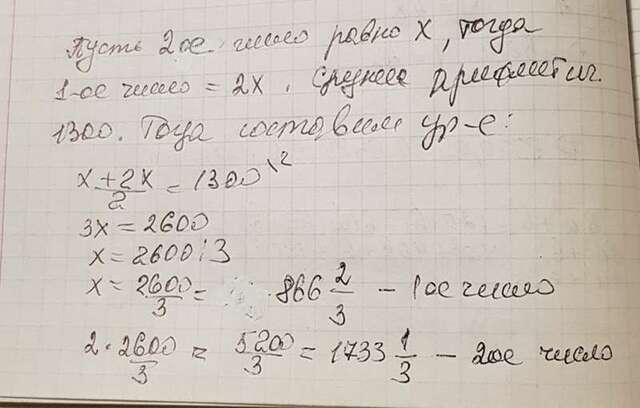 Пусть 2ое число равно X, тогда
1-ое число = 2X. Среднее арифметич.
1300. Тогда составим ур-е:
x+2x/2 = 1300 \2
3x = 2600
x = 2600:3
x = 2600/3 = 866 2/3 - 1ое число
2 · 2600/3 = 5200/3 = 1733 1/3 - 2ое число